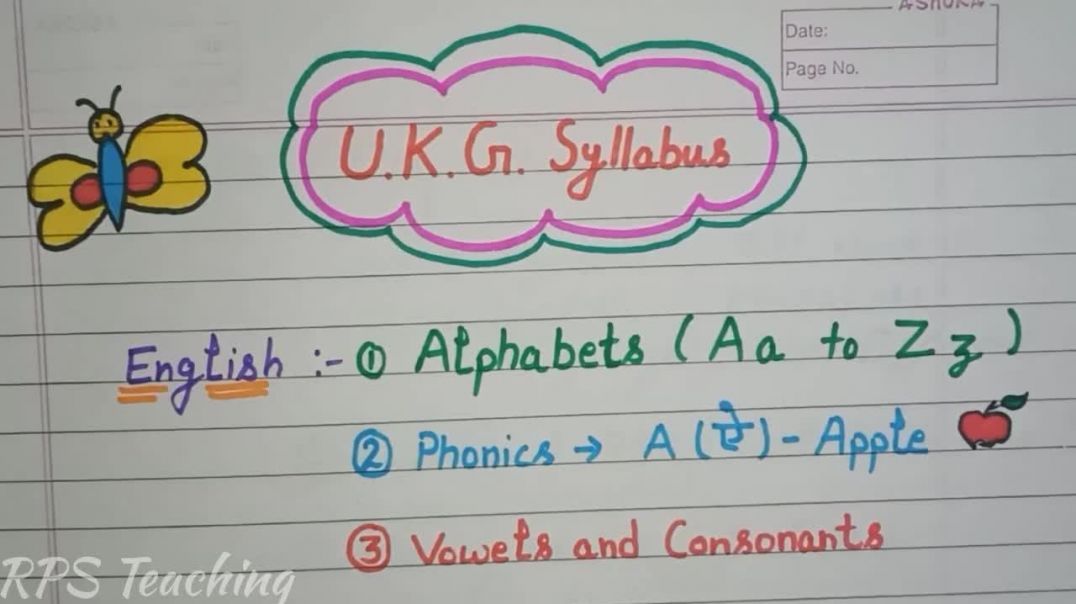 ASHOKA
Date:
Page No.
U.K.G. Syllabus
English :- ① Alphabets (Aa to Zz)
② Phonics → A (ऐ) - Apple
③ Vowels and Consonants
RPS Teaching